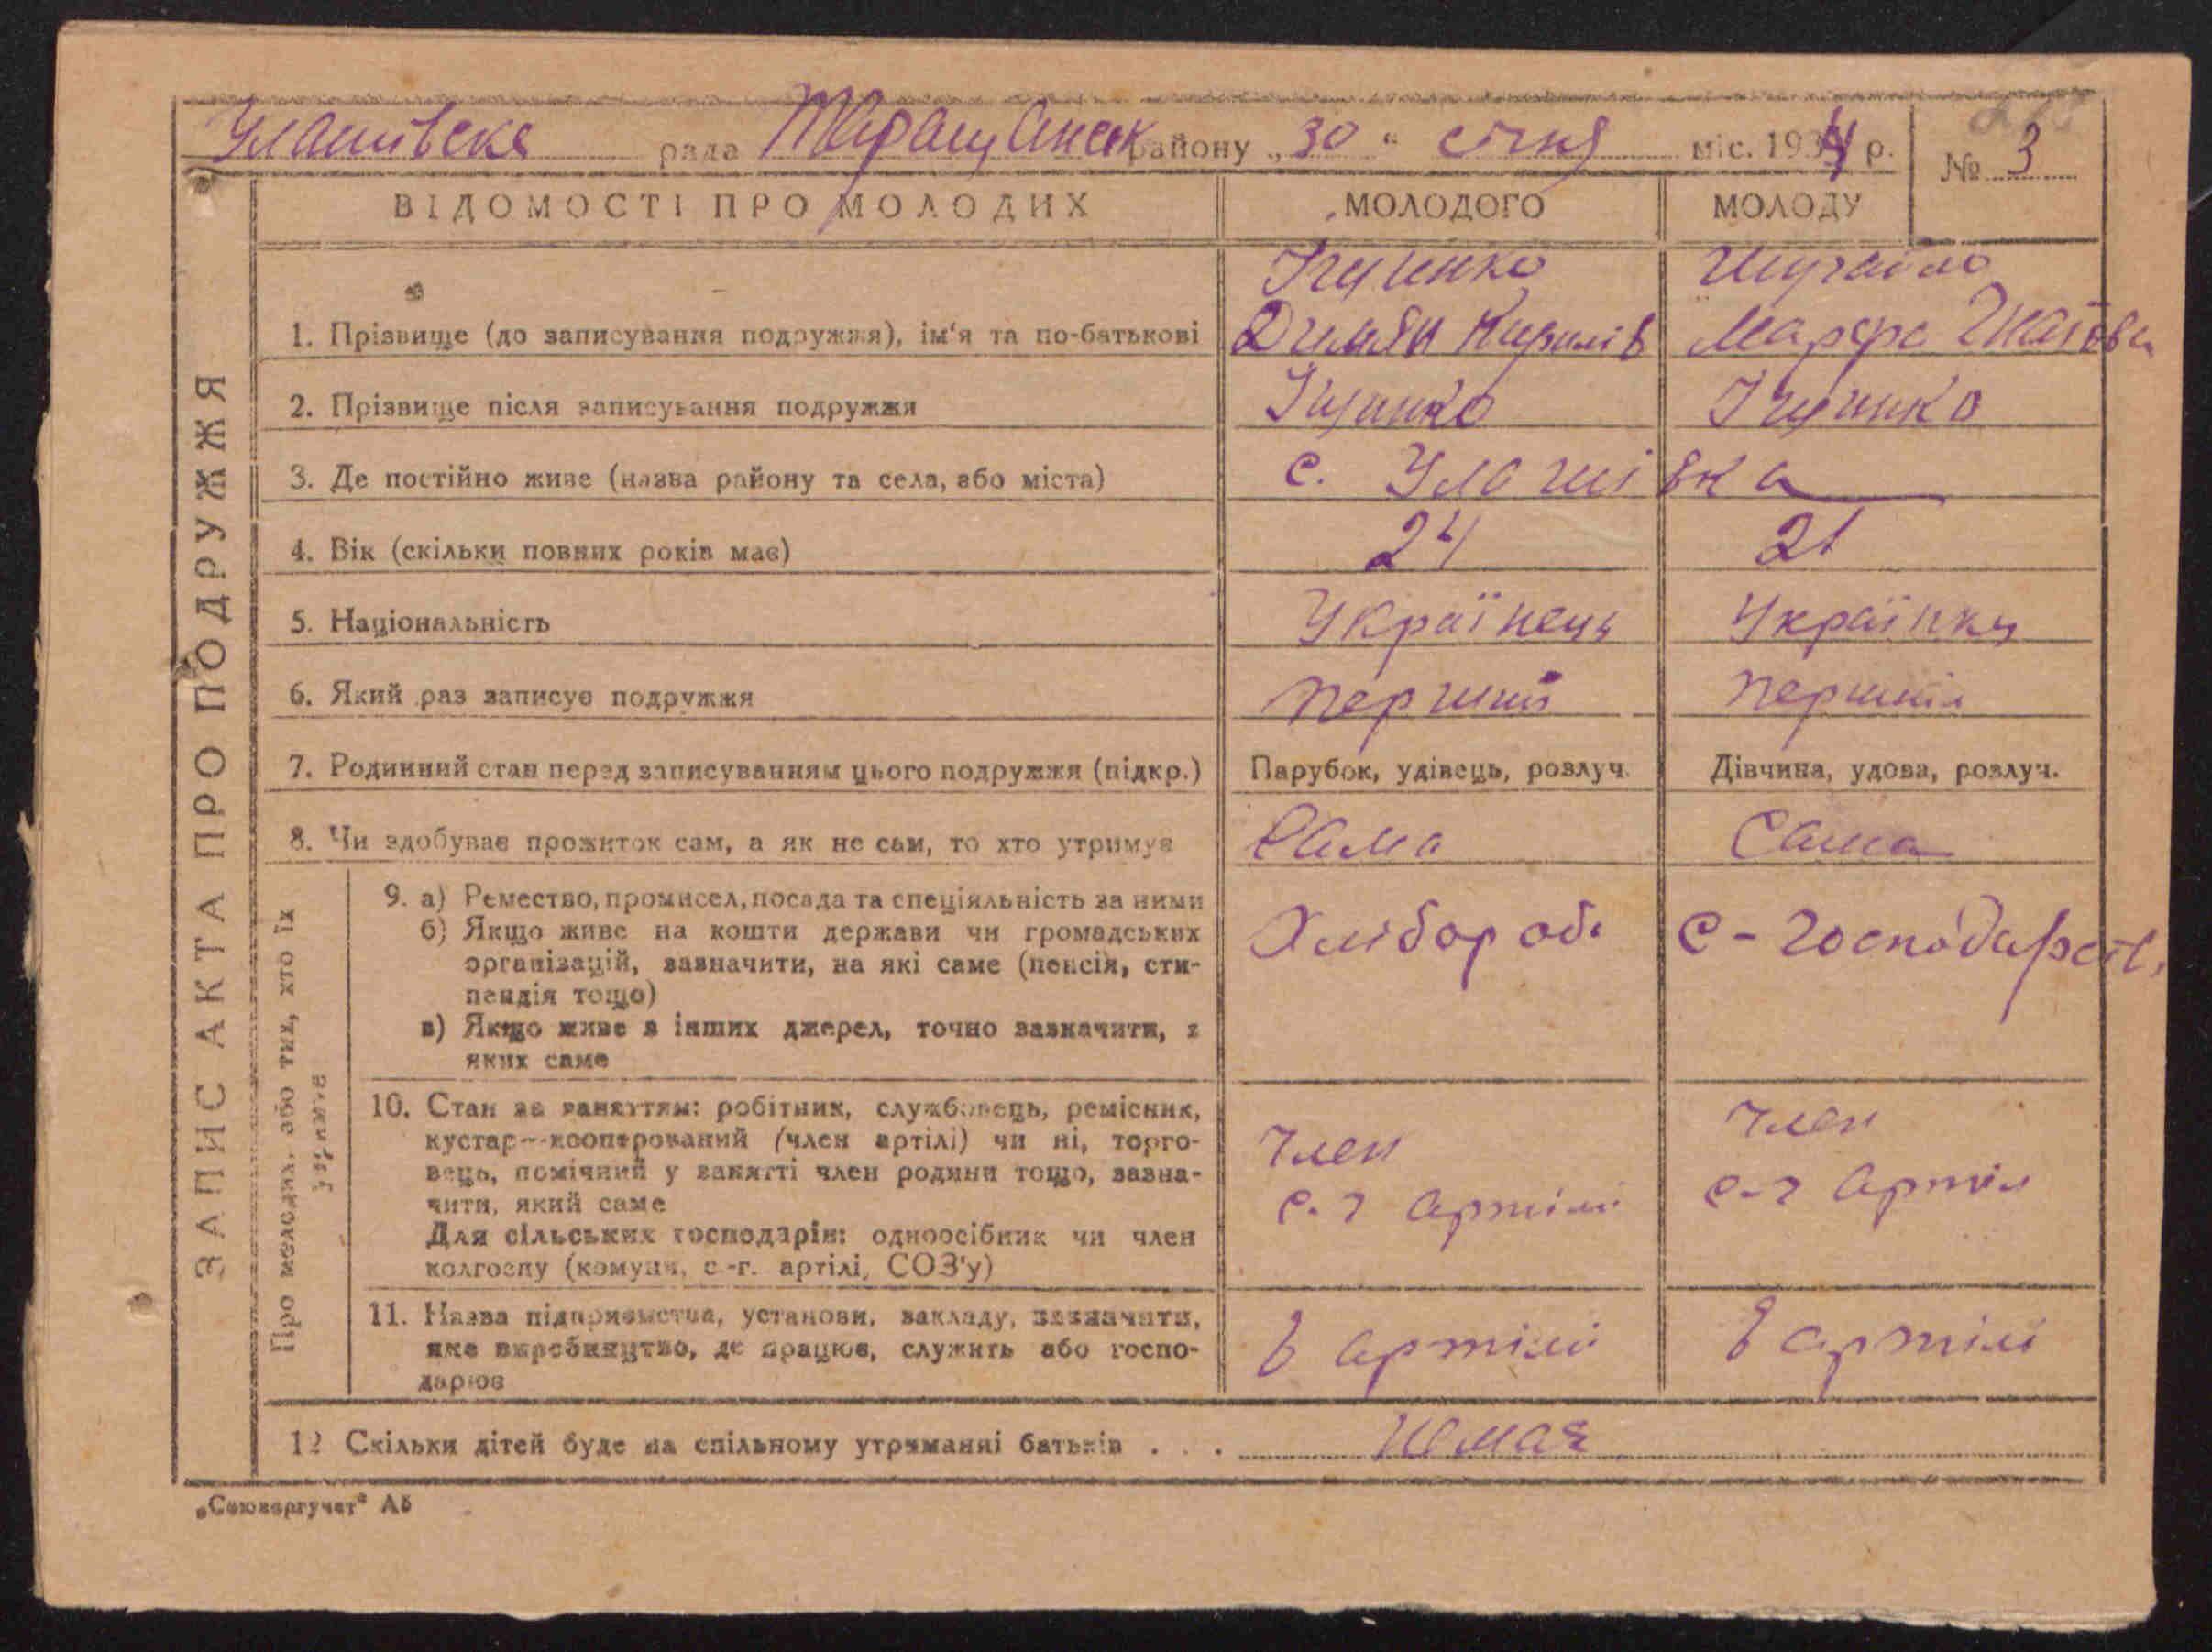 Улашівське рада Таращанськ району „30“ січня міс. 1934 р. № 3
ВІДОМОСТІ ПРО МОЛОДИХ МОЛОДОГО МОЛОДУ
ЗАПИС АКТА ПРО ПОДРУЖЖЯ
1. Прізвище (до записування подружжя), ім'я та по-батькові
Димян Кирилів
Марфа
2. Прізвище після записування подружжя
3. Де постійно живе (назва району та села, або міста) с. Улашівка
4. Вік (скільки повних років має) 24 21
5. Національність Українець Українка
6. Який раз записує подружжя перший перший
7. Родинний стан перед записуванням цього подружжя (підкр.) Парубок, удівець, розлуч. Дівчина, удова, розлуч.
8. Чи здобуває прожиток сам, а як не сам, то хто утримує Сама Сама
Про молодих, або тих, хто їх
утримує
9. а) Ремество, промисел, посада та спеціяльність за ними
б) Якщо живе на кошти держави чи громадських
організацій, зазначити, на які саме (пенсія, сти-
пендія тощо)
в) Якщо живе з інших джерел, точно зазначити, з
яких саме
Хлібороб. с-господарств,
10. Стан за заняттям: робітник, службовець, ремісник,
кустар—кооперований (член артілі) чи ні, торго-
вець, помічний у занятті член родини тощо, зазна-
чити, який саме
Для сільських господарів: одноосібник чи член
колгоспу (комуни, с.-г. артілі, СОЗ'у)
член
с-г артілі
член
с-г артіл
11. Назва підприємства, установи, закладу, зазначити,
яке виробництво, де працює, служить або госпо-
дарює
в артілі в артілі
12 Скільки дітей буде на спільному утриманні батьків . . . немає
„Союзоргучет“ А5